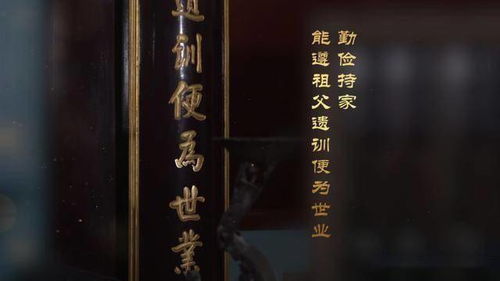 勤俭持家
能遵祖父遗训便为世业
遺訓便為世業